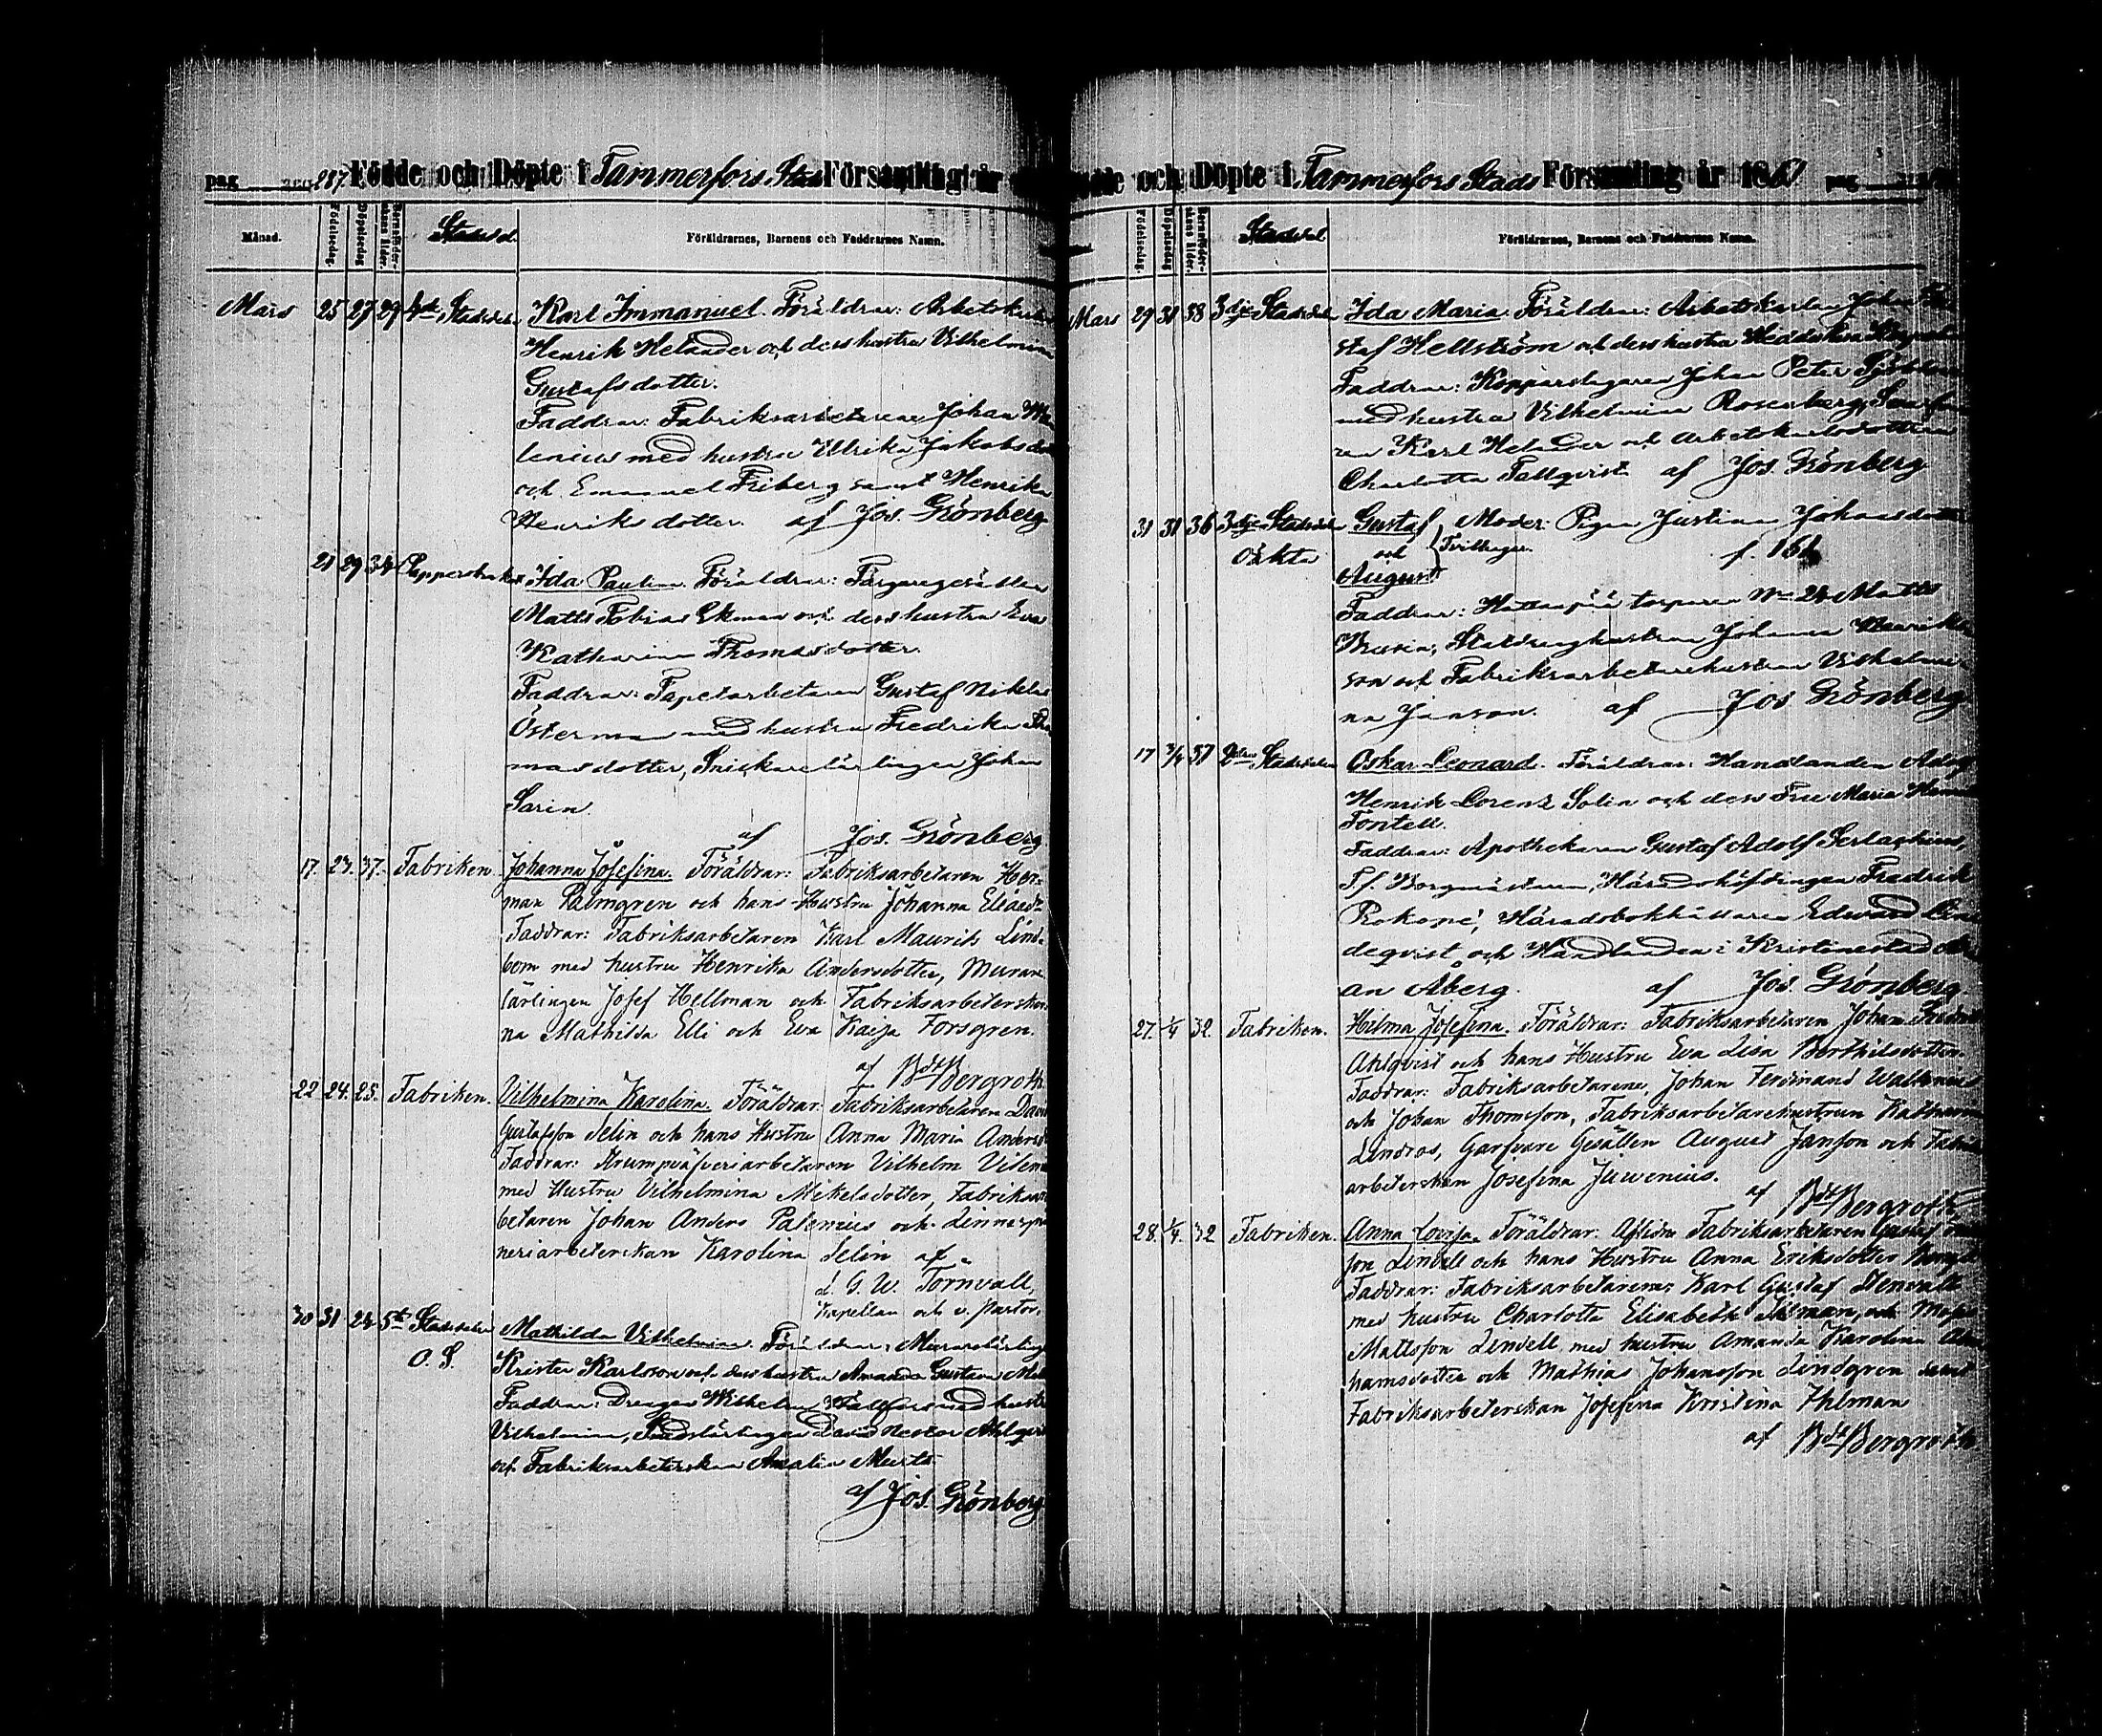 pag 287. Födde och Döpte i Tammerfors Stads Församling år
Månad. Födelsedag. Döpelsedag Barnaföderskans ålder. Stadsdel. Föräldrarnes, Barnens och Faddrarnes Namn.
Mars 25 27 29 4de Stadsdelen Karl Immanuel. Föräldrar: Arbetskarlen
Henrik Helander och dess hustru Vilhelmina
Gustafsdotter.
Faddrar: Fabriksarbetaren Johan
lenius med hustru Ulrika Jakobsdotter
och Emanuel Friberg samt Henrika
Henriksdotter. af Jos. Grönberg
21 29 34 Pappersbruket Ida Paulina. Föräldrar: Färgaregesällen
Matts Tobias Ekman och dess hustru Eva
Katharina Thomasdotter.
Faddrar: Tapetarbetaren Gustaf Niklas
Österman med hustru Fredrika Tho
masdotter, Snickarelärlingen Johan
Sarin.
af Jos. Grönberg
17. 23. 37. Fabriken. Johanna Josefina. Föräldrar: Fabriksarbetaren Her=
man Palmgren och hans Hustru Johanna Eliaed=
Faddrar: Fabriksarbetaren Karl Maurits Lind=
bom med hustru Henrika Andersdotter, Murare
lärlingen Josef Hellman och Fabriksarbeterskor
na Mathilda Elli och Eva Kaija Forsgren.
af Bdt Bergroth.
22 24. 25. Fabriken. Vilhelmina Karolina. Föräldrar: Fabriksarbetaren David
Gustafsson Selin och hans Hustru Anna Maria Andersd
Faddrar: Strumpväfveriarbetaren Vilhelm Vilen
med Hustru Vilhelmina Mikelsdotter, Fabriksar
betaren Johan Anders Palenius och Linnespin
neriarbeterskan Karolina Selin af
L. G. W. Törnvall,
Kapellan och v. pastor.
30 31 24 5te Stadsdelen Mathilda Vilhelmina. Föräldrar: Murarelärlingen
O. S. Krister Karlsson och dess hustru Amanda Gustava
Faddrar: Drengen Wilhelm med hustru
Vilhelmina, David Nestor Ahlqvist
och Fabriksarbeterskan Amalia
af Jos. Grönberg
och Döpte i Tammerfors Stads Församling år 1861 pag
Födelsedag. Döpelsedag Barnaföderskans ålder. Stadsdel Föräldrarnes, Barnens och Faddrarnes Namn.
Mars 29 31 38 3dje Stadsdelen Ida Maria. Föräldrar: Arbetskarlen Johan Gu
staf Hellström och dess hustru Hedda
Faddrar: Kopparslagaren Johan Peter
med hustru Vilhelmina Rosenberg,
ren Karl Helander och Arbetskarlsdottren
Charlotta Tallqvist af Jos. Grönberg
31 31 36 3dje Stadsdelen Gustaf Moder: Pigan Justina Johansdotter
Oäkta och Tvillingar. f.
August
Faddrar: Hattanpää torparen No 24 Matts
Statdrenghustrun Johanna Henriks
son och Fabriksarbetarehustrun Vilhelmi
na Janson. af Jos Grönberg
17 3/4 37 2dra Stadsdelen Oskar Leonard. Föräldrar: Handlanden Adolf
Henrik Lorenz Solin och dess Fru Maria
Fontell.
Faddrar: Apothekaren Gustaf Adolf Serlachius,
T.f. Borgmästaren, Häradshöfdingen Fredrik
Prokopé, Häradsbokhållaren Edward Lin
deqvist och Handlanden i Kristinestad
an Åberg. af Jos. Grönberg
27. 1/4 32. Fabriken. Hilma Josefina. Föräldrar: Fabriksarbetaren Johan Fredrik
Ahlqvist och hans Hustru Eva Lisa Berthilsdotter.
Faddrar: Fabriksarbetarene Johan Ferdinand Waltenius
och Johan Thomsson, Fabriksarbetarehustrun Katharina
Lindros, Garfvare Gesällen August Janson och Fabriks
arbeterskan Josefina Juvenius.
af Bdt Bergroth
28. 1/4. 32 Fabriken. Anna Lovisa. Föräldrar: Aflidne Fabriksarbetaren Gustaf
son Lindell och hans Hustru Anna Eriksdotter
Faddrar: Fabriksarbetarene Karl Gustaf Stenvall
med hustru Charlotta Elisabeth och
Mattsson Lindell med hustru Amanda Karolina Abra
hamsdotter och Mathias Johansson Lindgren samt
Fabriksarbeterskan Josefina Kristina Ihlman
af Bdt Bergroth